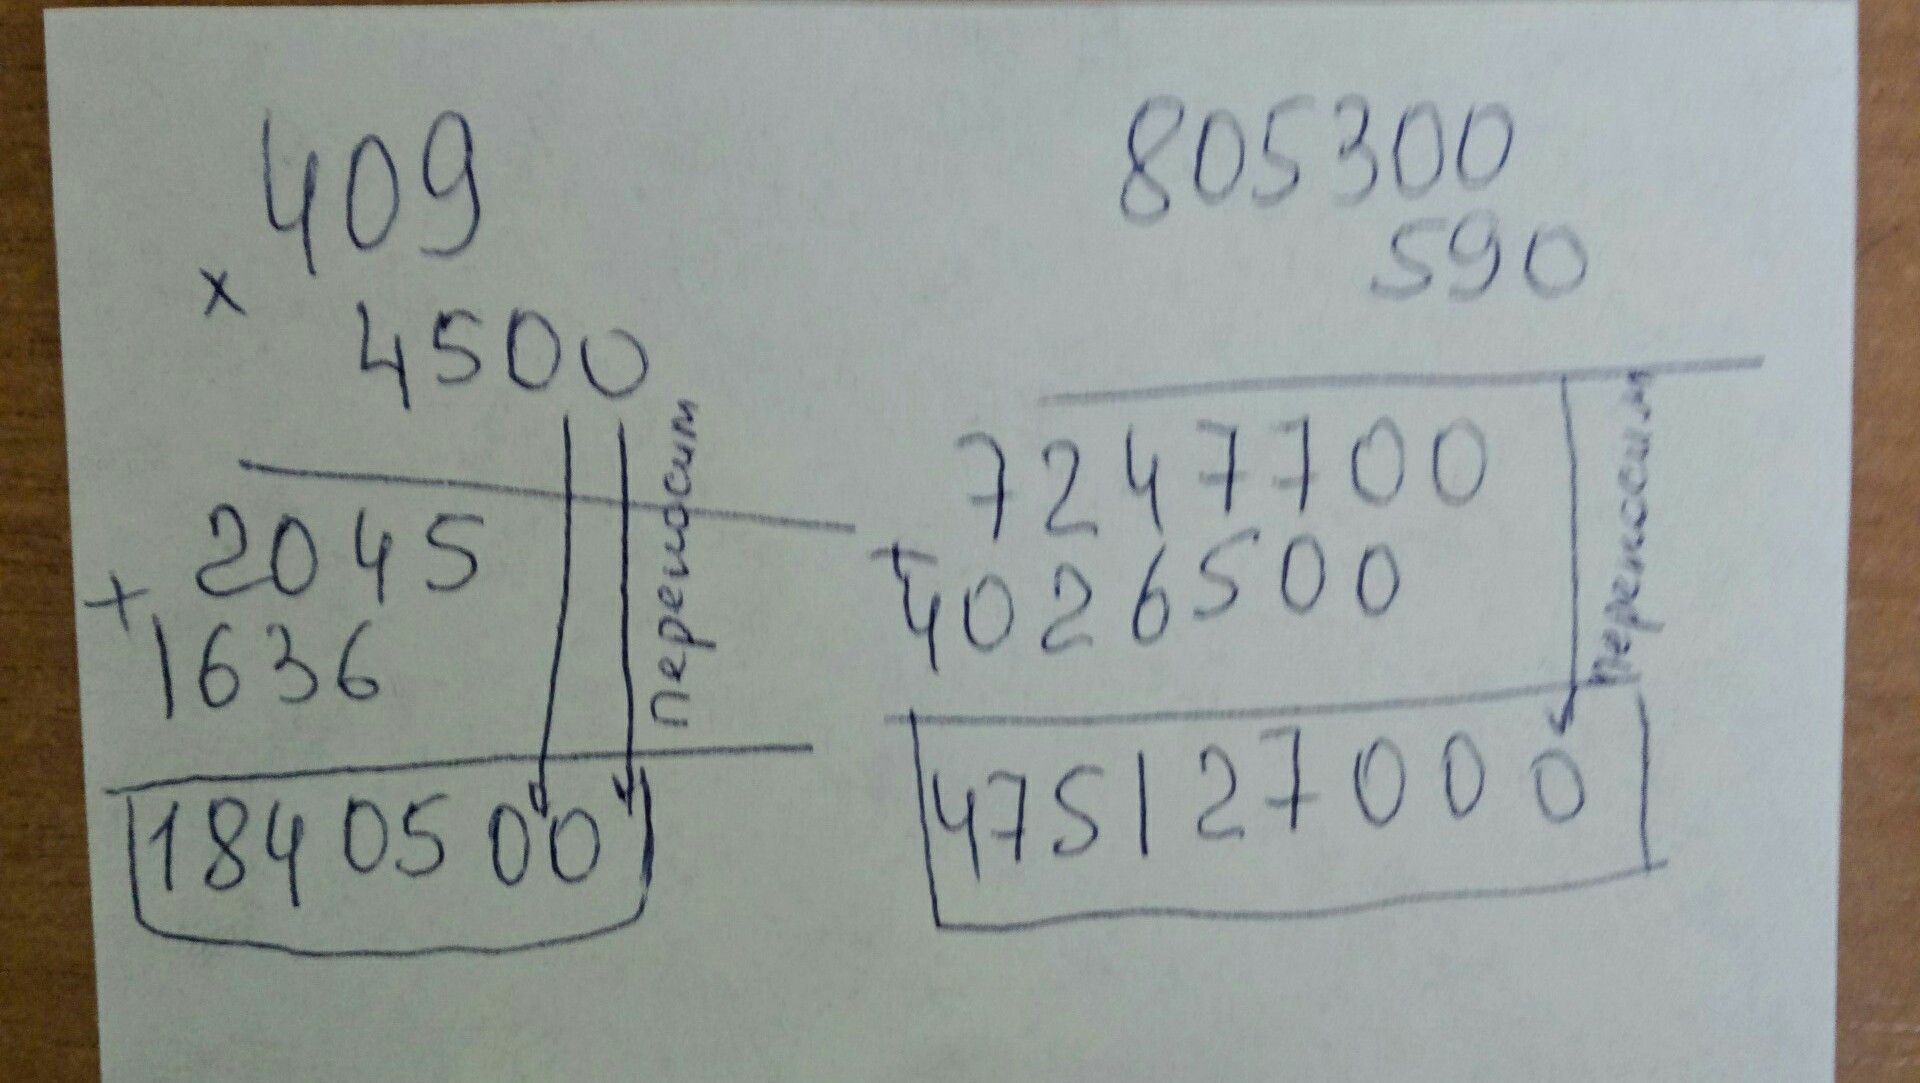 409
×
4500
2045
+
1636
переносим
1840500
805300
590
7247700
+
4026500
переносим
475127000